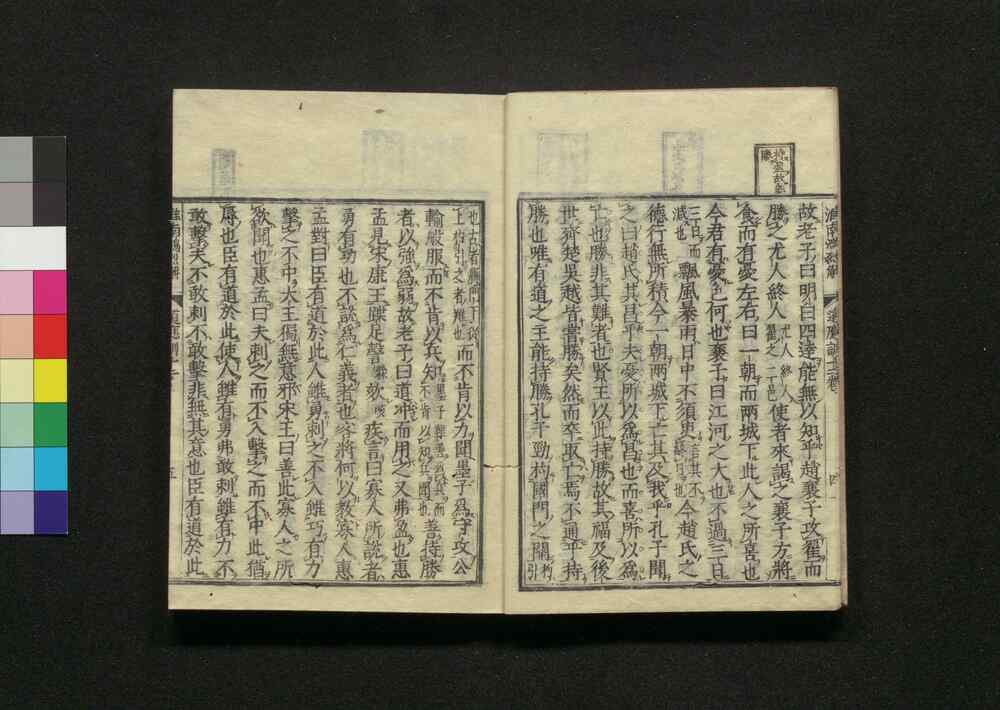 故老子曰明白四達能無以知乎趙襄子攻翟而
勝之尤人終人尤人終人翟之二邑使者來謁之襄子方將
食而有憂色左右曰一朝而兩城下此人之所喜也
今君有憂色何也襄子曰江河之大也不過三日
三日而減也飄風暴雨日中不須臾言其不終日也今趙氏之
德行無所積今一朝兩城下亡其及我乎孔子聞
之曰趙氏其昌乎夫憂所以為昌也而喜所以為
亡也勝非其難者也賢王以此持勝故其福及後
世齊楚吳越皆嘗勝矣然而卒取亡焉不通乎持
勝也唯有道之王能持勝孔子勁杓國門之關杓引
也古者縣門下從上杓引之者難也而不肯以力聞墨子為守攻公
輸般服而不肯以兵知善持勝
者以強為弱故老子曰道沖而用之又弗盈也惠
孟見宋康王蹀足謦欬疾言曰寡人所說者
勇有功也不說為仁義者也客將何以教寡人惠
孟對曰臣有道於此人雖勇刺之不入雖巧有力
擊之不中大王獨無意邪宋王曰善此寡人之所
欲聞也惠孟曰夫刺之而不入擊之而不中此猶
辱也臣有道於此使人雖有勇弗敢刺雖有力不
敢擊夫不敢刺不敢擊非無其意也臣有道於此
五